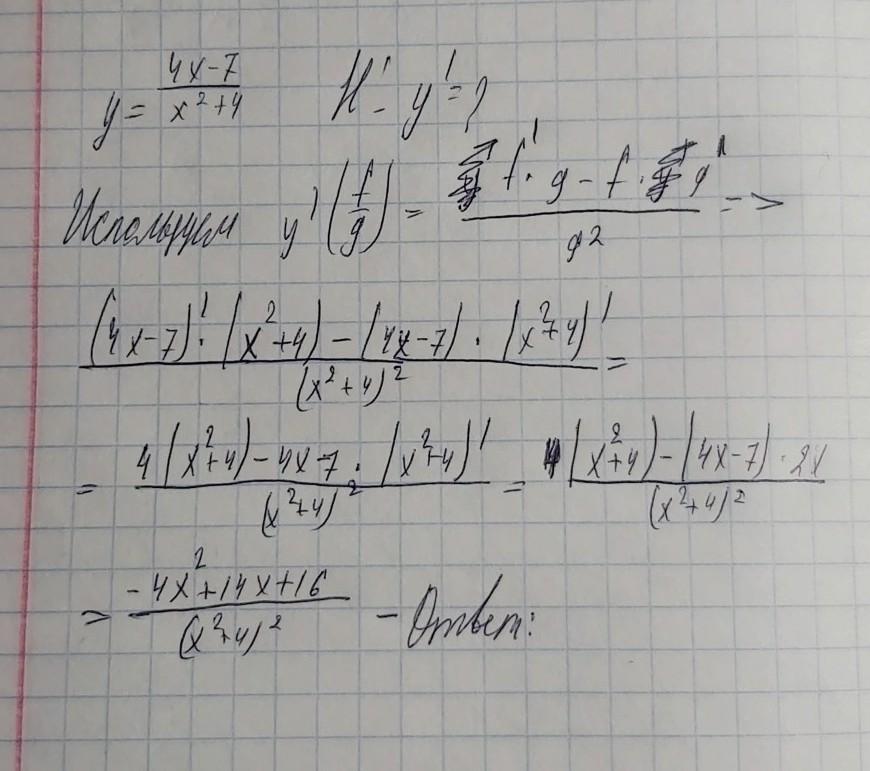 y = (4x-7)/(x²+4) Н - y' = ?
Используем y' (f/g) = (f' · g - f · g')/g² =>
((4x-7)' · (x²+4) - (4x-7) · (x²+4)')/(x²+4)² =
= (4(x²+4) - 4x-7 · (x²+4)')/(x²+4)² = (4(x²+4) - (4x-7) · 2x)/(x²+4)²
= (-4x²+14x+16)/(x²+4)² - Ответ: